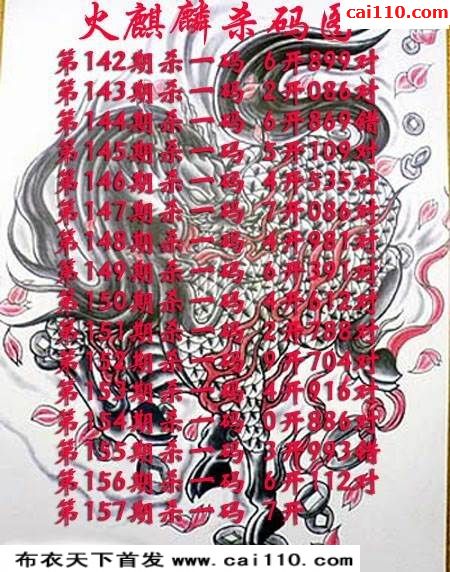 cai110.com
火麒麟杀码区
第142期杀一码 6开899对
第143期杀一码 2开086对
第144期杀一码 6开869错
第145期杀一码 5开109对
第146期杀一码 4开535对
第147期杀一码 7开086对
第148期杀一码 4开981对
第149期杀一码 6开391对
第150期杀一码 4开612对
第151期杀一码 2开788对
第152期杀一码 9开704对
第153期杀一码 4开916对
第154期杀一码 0开886对
第155期杀一码 3开993错
第156期杀一码 6开112对
第157期杀一码 7开
布衣天下首发 www.cai110.com